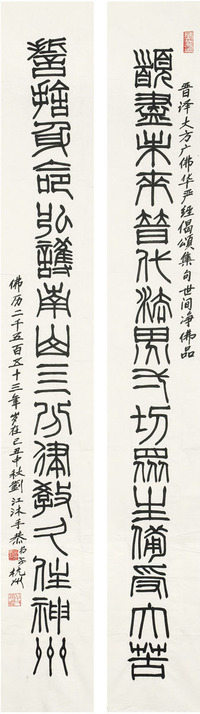 晋译大方广佛华严经偈頌集句世间净佛品
願盡未來普代法界一切眾生備受大苦
誓捨身命弘護南山四分律教久住神州
佛历二千五百五十三年岁在己丑中秋劉江沐手恭书于杭州